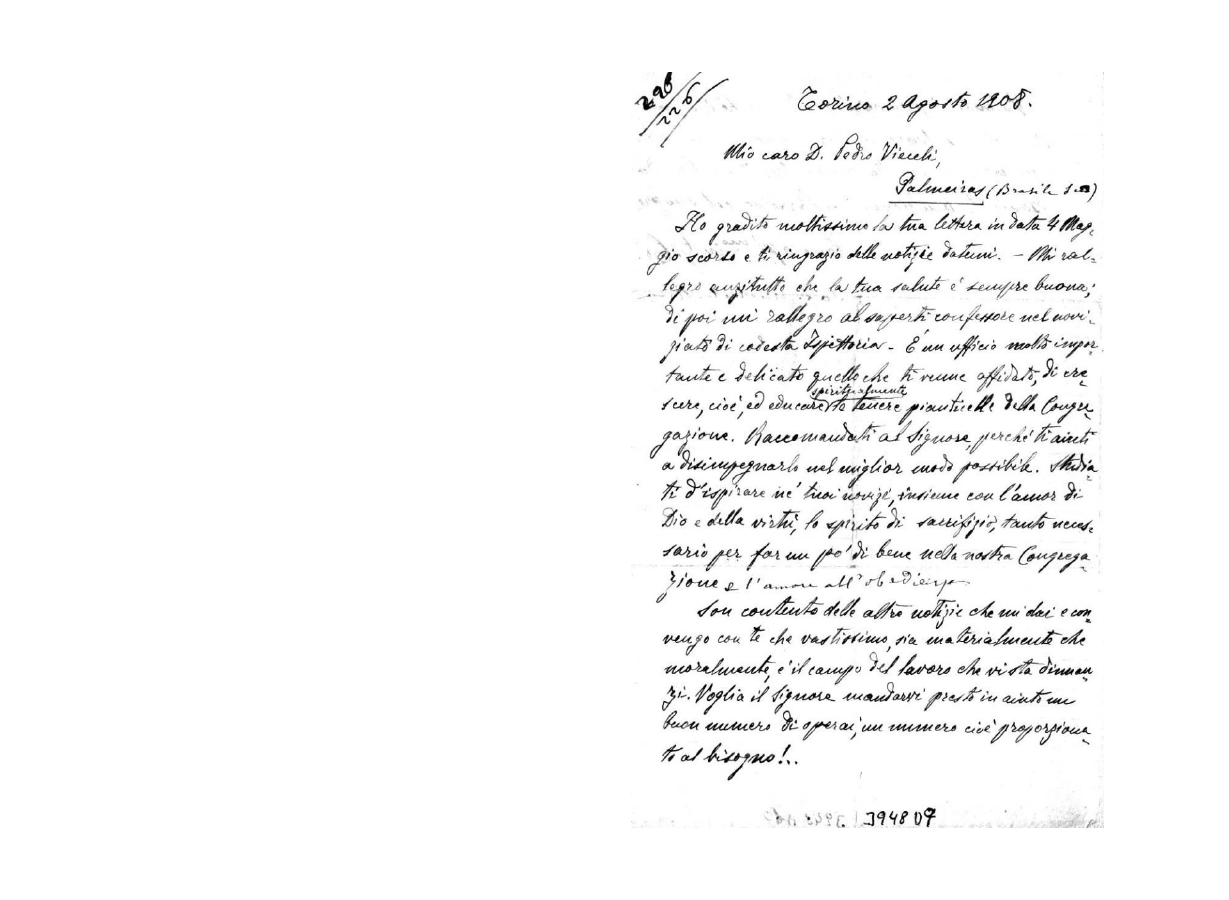 296
226
Torino 2 Agosto 1908.
Mio caro D. Pedro
Palmeiras (Brasile
Ho gradito moltissimo la tua lettera in data 4 Mag-
gio scorso e ti ringrazio delle notizie datemi. - Mi ral-
legro anzitutto che la tua salute è sempre buona;
di poi mi rallegro al saperti confessore nel novi-
ziato di codesta Ispettoria - È un ufficio molto impor-
tante e delicato quello che ti venne affidato, di cre-
spiritualmente
scere, cioè, ed educare le tenere pianticelle della Congre-
gazione. Raccomandati al Signore, perché ti aiuti
a disimpegnarlo nel miglior modo possibile. Studia-
ti d'ispirare ne' tuoi novizi, insieme con l'amor di
Dio e della virtù, lo spirito di sacrifizio, tanto neces-
sario per far un po' di bene nella nostra Congrega-
zione e l'amore all'obbedienza
Son contento delle altre notizie che mi dai e con-
vengo con te che vastissimo, sia materialmente che
moralmente, è il campo del lavoro che vi sta dinnan-
zi. Voglia il Signore mandarvi presto in aiuto un
buon numero di operai, un numero cioè proporziona-
to al bisogno!..
3948 D7